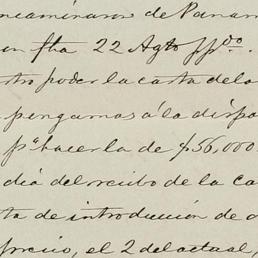 ncaminaron de Panam
on fha 22 Agto ppdo.
tro poder la carta de la
pengamos á la dispo
pa hacerla de $56,000
dia del recibo de la ca
ta de introducción de
precio, el 2 del actual,